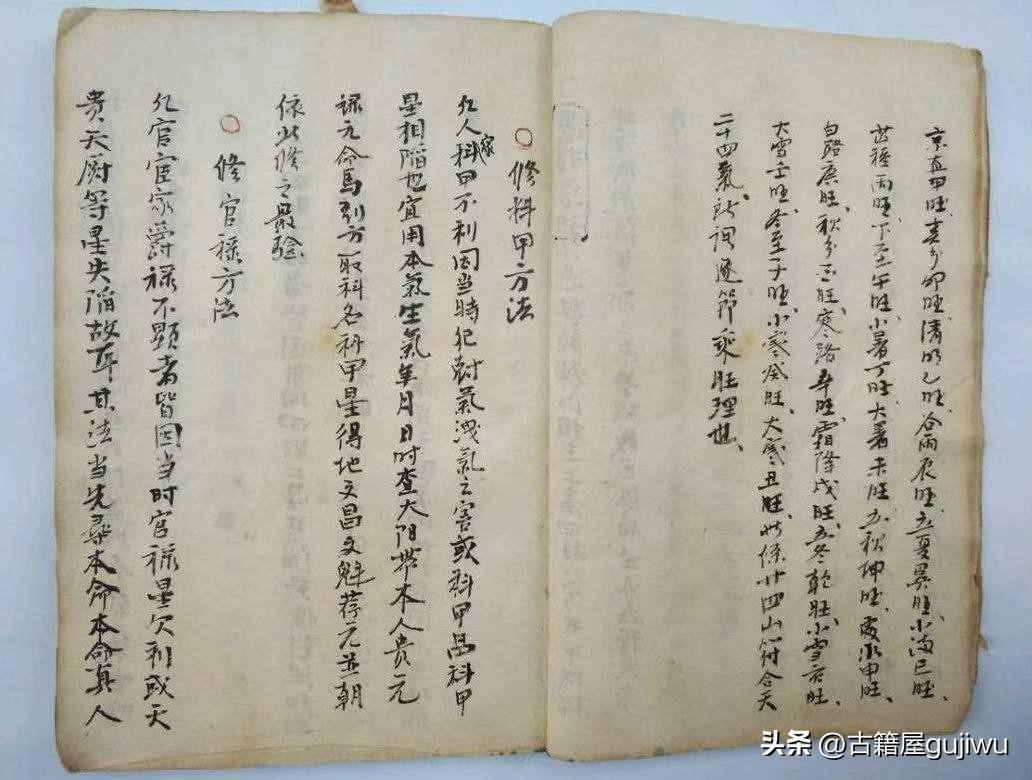 京直甲旺、春分卯旺、清明乙旺、谷雨辰旺、立夏巽旺、小满巳旺、
芒種丙旺、下至午旺、小暑丁旺、大暑未旺、立秋坤旺、處水申旺、
白路庚旺、秋分酉旺、寒路辛旺、霜降戌旺、立冬乾旺、小雪亥旺、
大雪壬旺、冬至子旺、小寒癸旺、大寒丑旺、此係廿四山符合天
二十四氣、訣調逐節乘旺理也、
○修科甲方法
凡人家科甲不利因当時犯尅氣洩氣之害或科甲品科甲
星相陷也宜用本氣生氣年月日时查太阳带本人贵元
禄元命馬到方取科名科甲星得地文昌文魁荐元並朝
依此修之最验
○修官禄方法
凡官宦家爵禄不顯者皆因当时官禄星欠利或天
贵天厨等星失陷故耳其法当先尋本命本命真人
头条 @古籍屋gujiwu